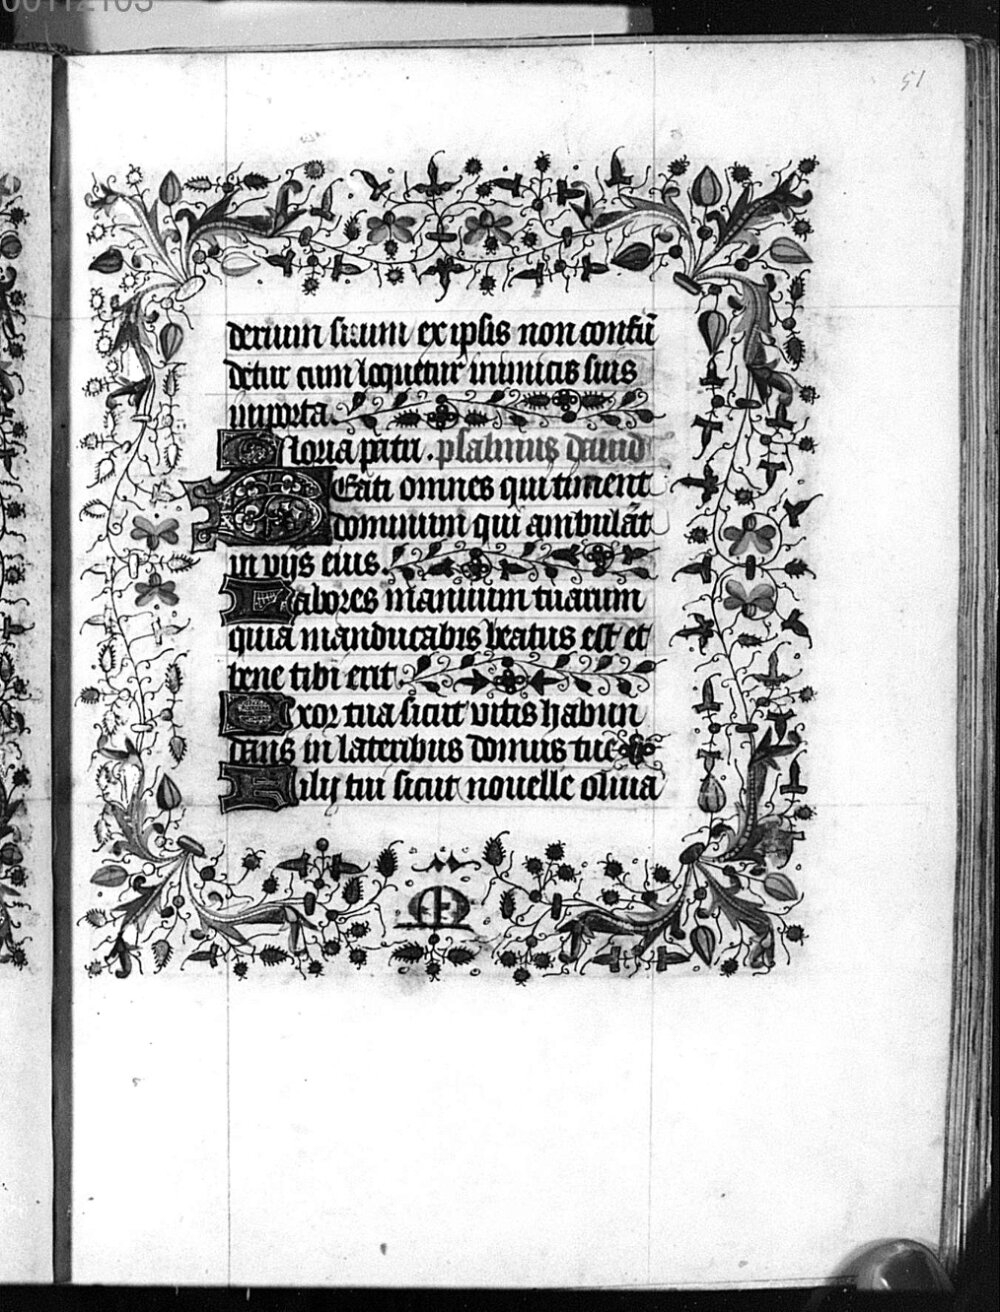 00112103
51
derium suum ex ipsis non confū
detur cum loquetur inimicis suis
in porta.
Gloria patri. psalmus dauid
Beati omnes qui timent
dominum qui ambulāt
in vijs eius.
Labores manuum tuarum
quia manducabis beatus est et
bene tibi erit.
Uxor tua sicut vitis habun
dans in lateribus domus tue
Filij tui sicut nouelle oliua
M